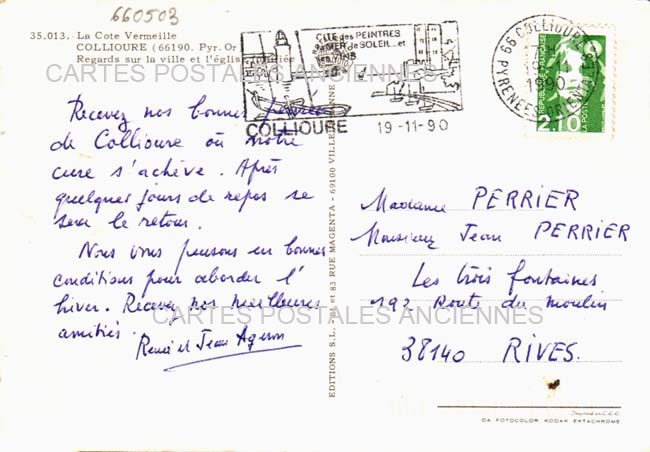 660503
35.013. La Cote Vermeille
COLLIOURE (66190. Pyr. Or
Regards sur la ville et l'église
CARTES POSTALES ANCIENNES
CITE des PEINTRES
MER de SOLEIL... et
COLLIOURE 19-11-90
66 COLLIOURE
1990
PYRENEES ORIENTALES
REPUBLIQUE FRANCAISE
2,10
LA POSTE
Recevez nos bonnes pensées
de Collioure où notre
cure s'achève. Après
quelques jours de repos ce
sera le retour.
Nous vous pensons en bonnes
conditions pour aborder l'
hiver. Recevez nos meilleures
amitiés.
Renée et Jean Ageron
EDITIONS S.L. et 83 RUE MAGENTA - 69100 VILLEURBANNE
Madame PERRIER
Monsieur Jean PERRIER
Les trois fontaines
192 Route du moulin
CARTES POSTALES ANCIENNES
38140 RIVES.
Imprimé en C.E.E.
DA FOTOCOLOR KODAK EKTACHROME